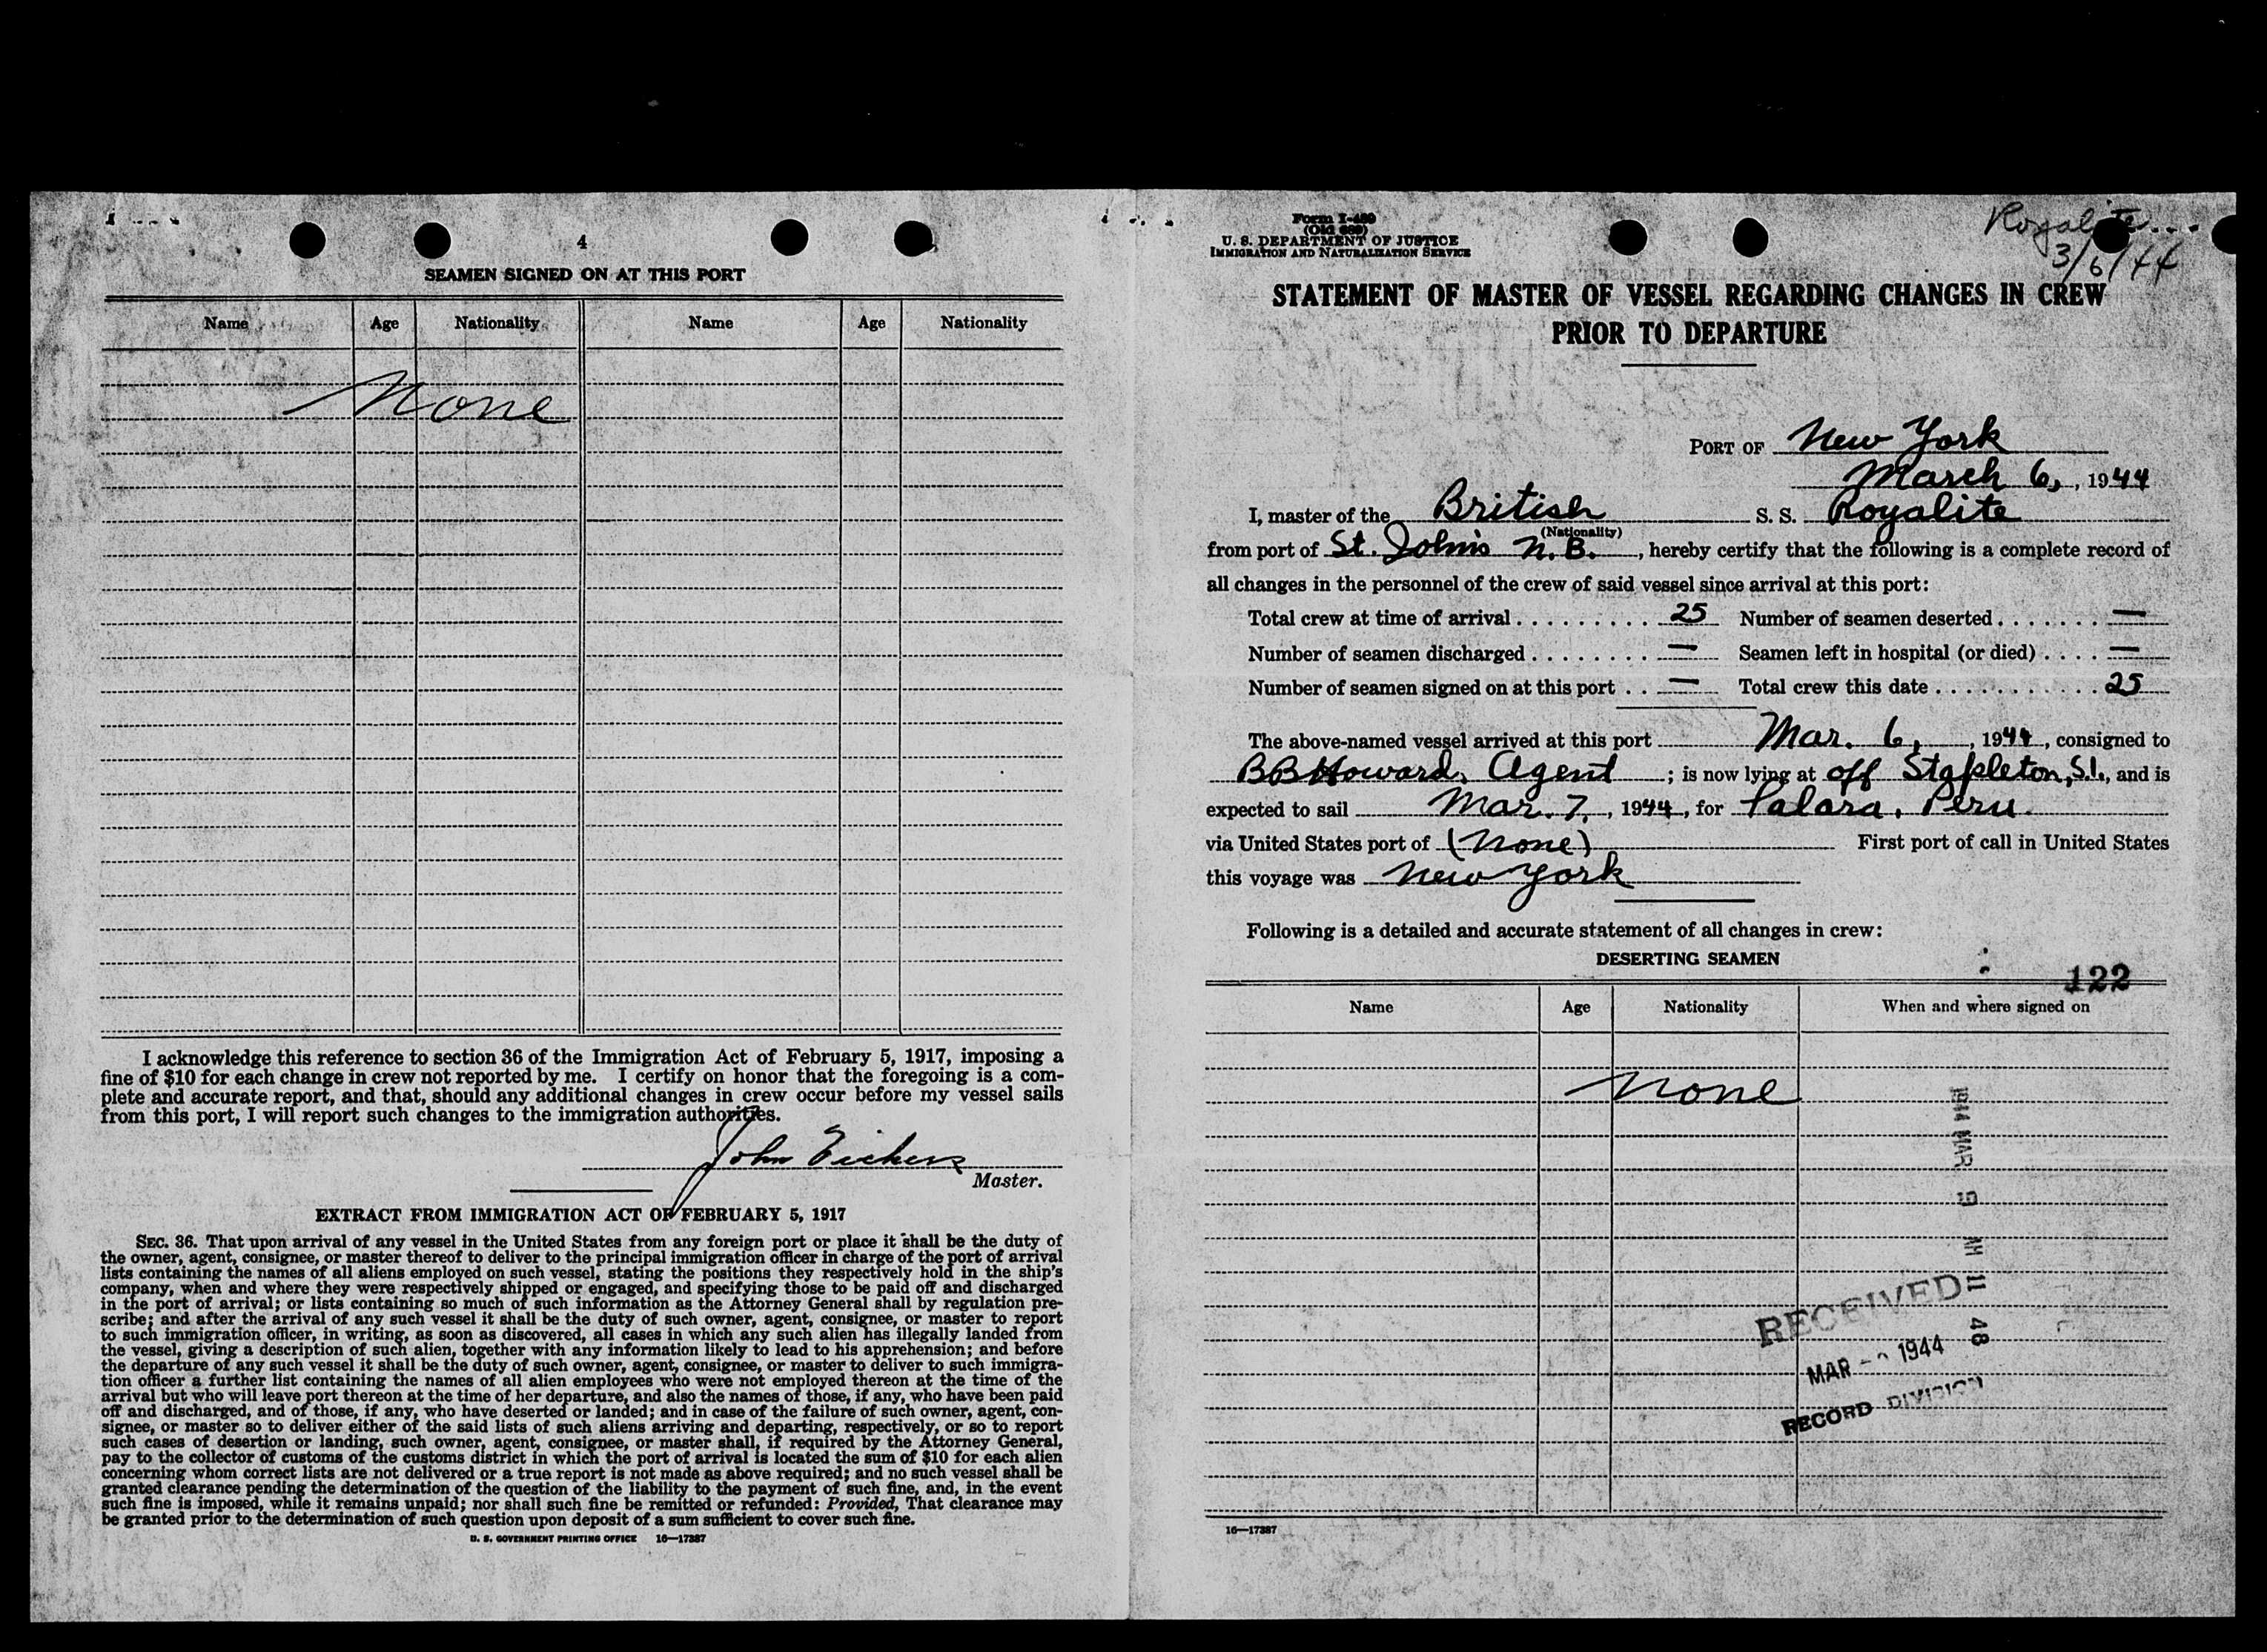 4
SEAMEN SIGNED ON AT THIS PORT
Name Age Nationality Name Age Nationality
None
I acknowledge this reference to section 36 of the Immigration Act of February 5, 1917, imposing a
fine of $10 for each change in crew not reported by me. I certify on honor that the foregoing is a com-
plete and accurate report, and that, should any additional changes in crew occur before my vessel sails
from this port, I will report such changes to the immigration authorities.
John
Master.
EXTRACT FROM IMMIGRATION ACT OF FEBRUARY 5, 1917
SEC. 36. That upon arrival of any vessel in the United States from any foreign port or place it shall be the duty of
the owner, agent, consignee, or master thereof to deliver to the principal immigration officer in charge of the port of arrival
lists containing the names of all aliens employed on such vessel, stating the positions they respectively hold in the ship's
company, when and where they were respectively shipped or engaged, and specifying those to be paid off and discharged
in the port of arrival; or lists containing so much of such information as the Attorney General shall by regulation pre-
scribe; and after the arrival of any such vessel it shall be the duty of such owner, agent, consignee, or master to report
to such immigration officer, in writing, as soon as discovered, all cases in which any such alien has illegally landed from
the vessel, giving a description of such alien, together with any information likely to lead to his apprehension; and before
the departure of any such vessel it shall be the duty of such owner, agent, consignee, or master to deliver to such immigra-
tion officer a further list containing the names of all alien employees who were not employed thereon at the time of the
arrival but who will leave port thereon at the time of her departure, and also the names of those, if any, who have been paid
off and discharged, and of those, if any, who have deserted or landed; and in case of the failure of such owner, agent, con-
signee, or master so to deliver either of the said lists of such aliens arriving and departing, respectively, or so to report
such cases of desertion or landing, such owner, agent, consignee, or master shall, if required by the Attorney General,
pay to the collector of customs of the customs district in which the port of arrival is located the sum of $10 for each alien
concerning whom correct lists are not delivered or a true report is not made as above required; and no such vessel shall be
granted clearance pending the determination of the question of the liability to the payment of such fine, and, in the event
such fine is imposed, while it remains unpaid; nor shall such fine be remitted or refunded: Provided, That clearance may
be granted prior to the determination of such question upon deposit of a sum sufficient to cover such fine.
U. S. GOVERNMENT PRINTING OFFICE 16—17387
Form I-489
(Old 689)
U. S. DEPARTMENT OF JUSTICE
IMMIGRATION AND NATURALIZATION SERVICE
Royalite
3/6/44
STATEMENT OF MASTER OF VESSEL REGARDING CHANGES IN CREW
PRIOR TO DEPARTURE
PORT OF New York
March 6, , 1944
I, master of the British S. S. Royalite
(Nationality)
from port of St. John's N.B. , hereby certify that the following is a complete record of
all changes in the personnel of the crew of said vessel since arrival at this port:
Total crew at time of arrival . . . . . . . . . 25 Number of seamen deserted . . . . . . . —
Number of seamen discharged . . . . . . . . — Seamen left in hospital (or died) . . . . —
Number of seamen signed on at this port . . — Total crew this date . . . . . . . . . . . 25
The above-named vessel arrived at this port Mar. 6, , 1944 , consigned to
BB Howard, Agent ; is now lying at off Stapleton, S.I., and is
expected to sail Mar. 7, , 1944 , for Talara, Peru.
via United States port of (None) First port of call in United States
this voyage was New York
Following is a detailed and accurate statement of all changes in crew:
DESERTING SEAMEN
122
Name Age Nationality When and where signed on
None
1944 MAR 9 AM 11 48
RECEIVED
MAR 1944
RECORD DIVISION
16—17387